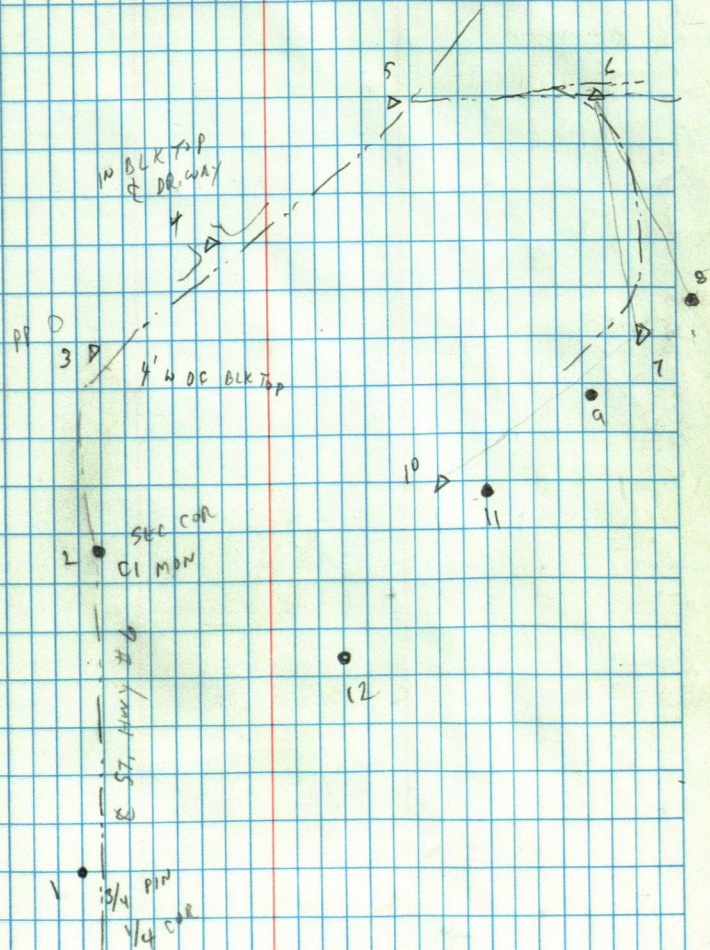 5
6
IN BLK TOP
℄ DRIWAY
4
8
PP
3
7
4' W OC BLK TOP
9
10
11
SEC COR
2
C1 MON
ST HWY # 9
12
1
3/4 PIN
1/4 COR